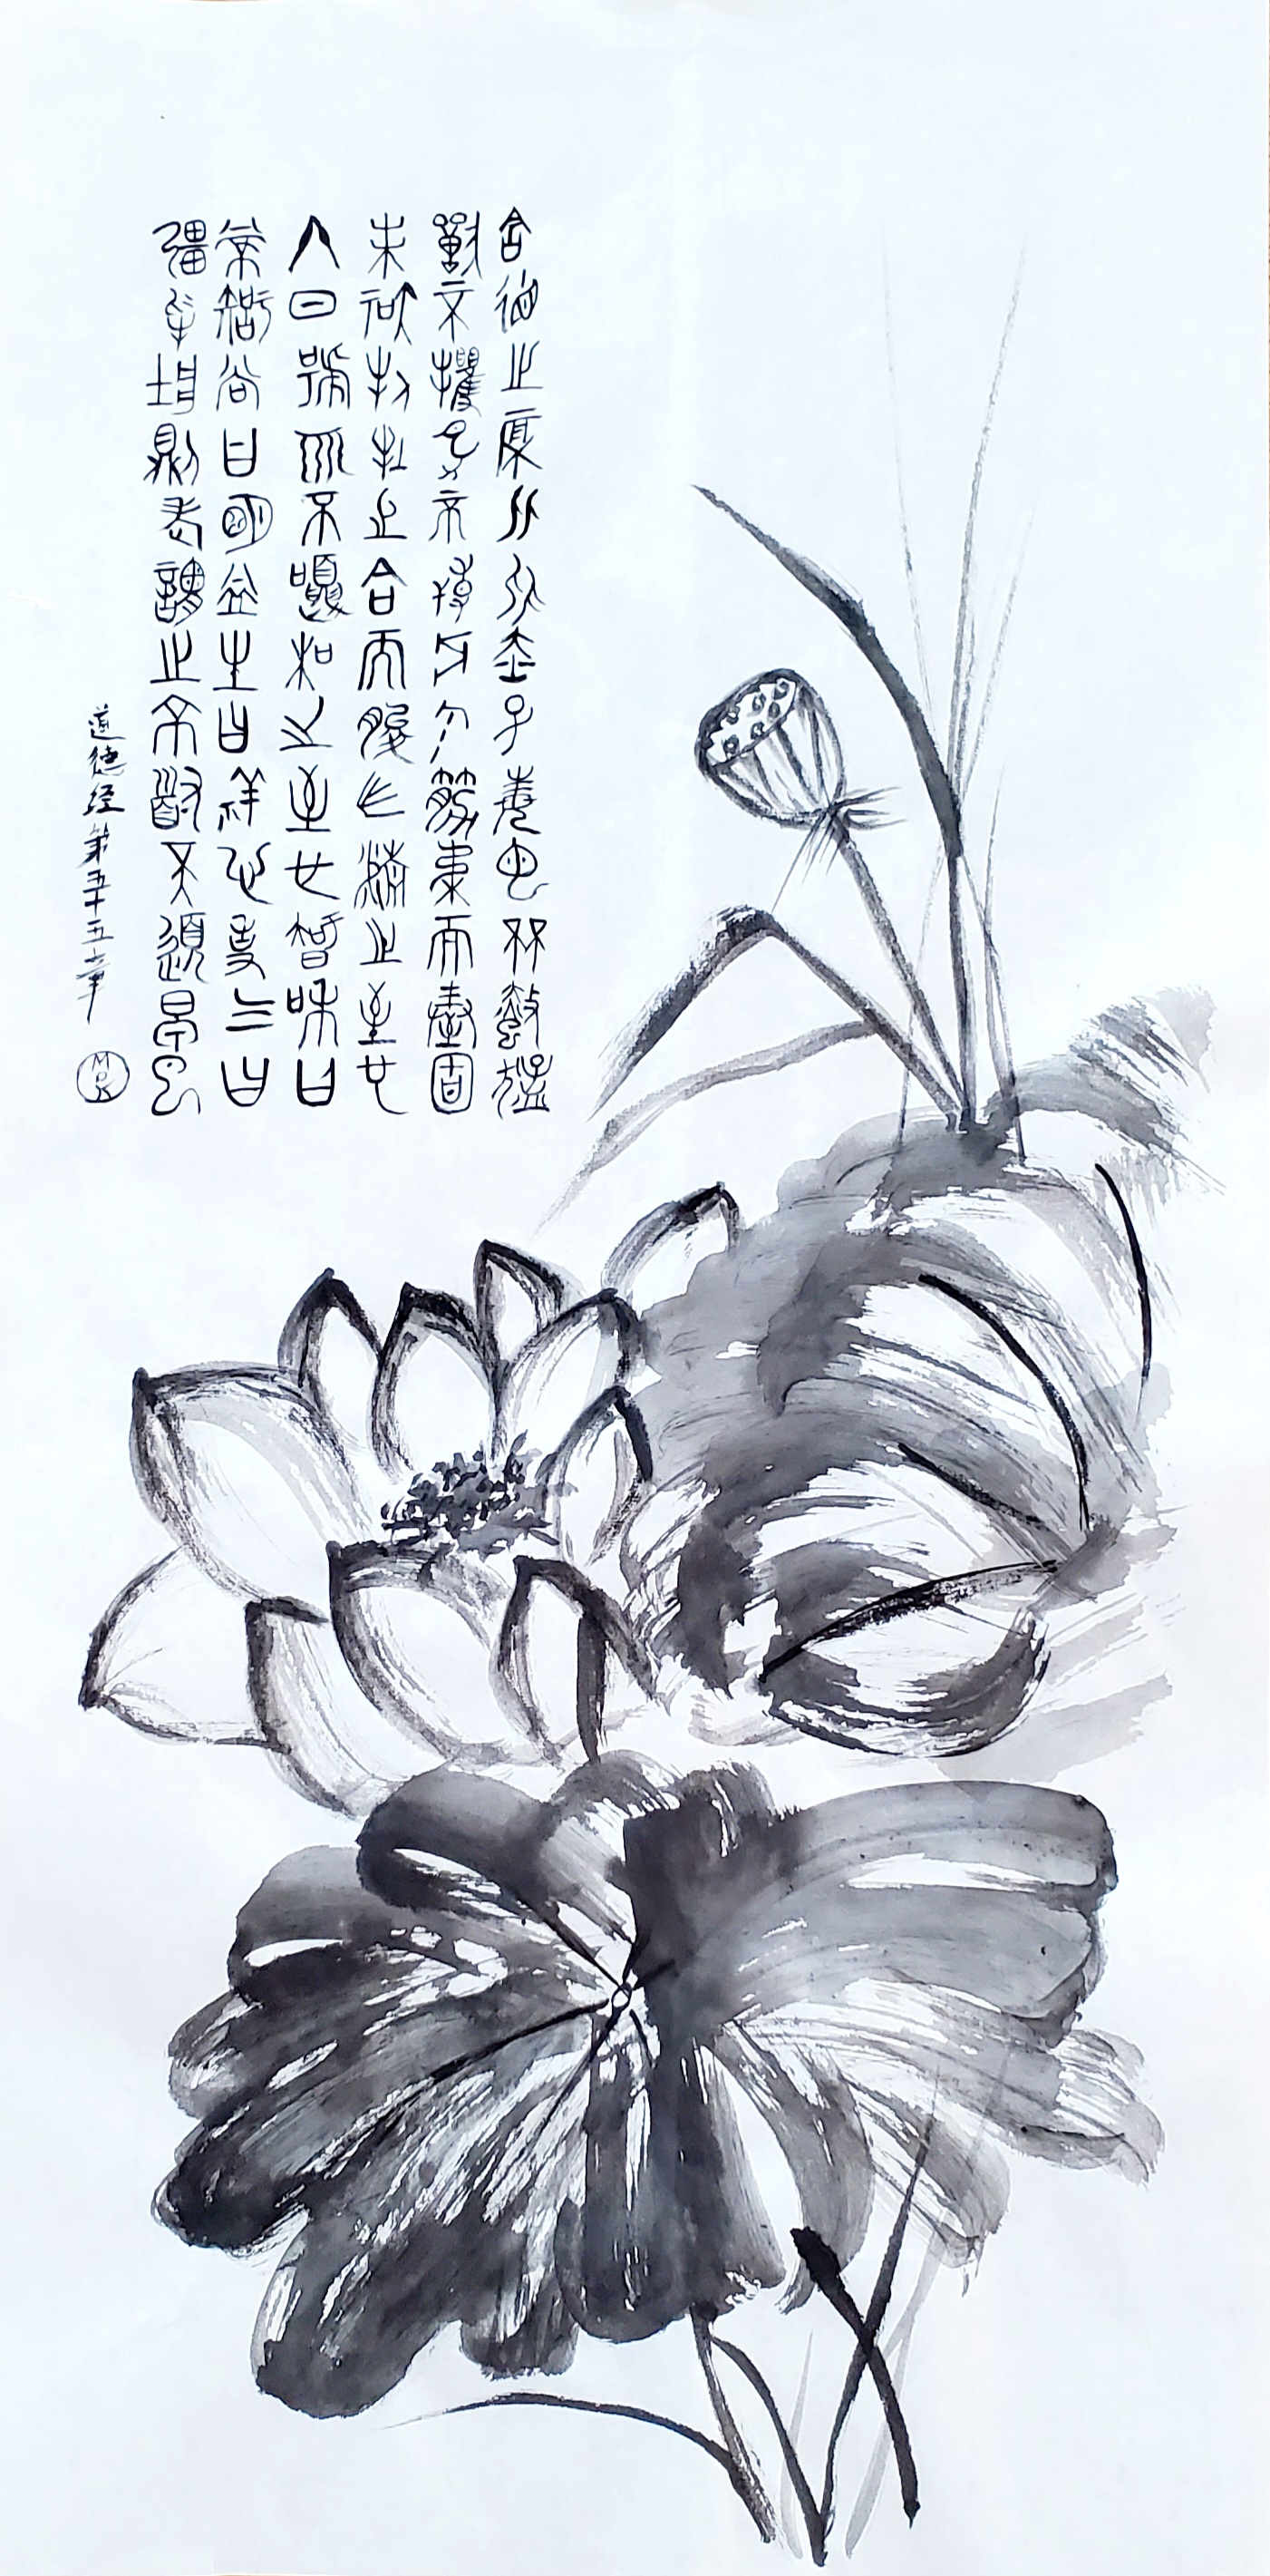 含德之厚比於赤子毒虫不螫猛
獸不攫鳥不搏骨弱筋柔而握固
未知牝牡之合而朘作精之至也
終日號而不嗄和之至也知和曰
常知和曰明益生曰祥心使气曰
強物壯則老謂之不道不道早已
道德经第五十五章